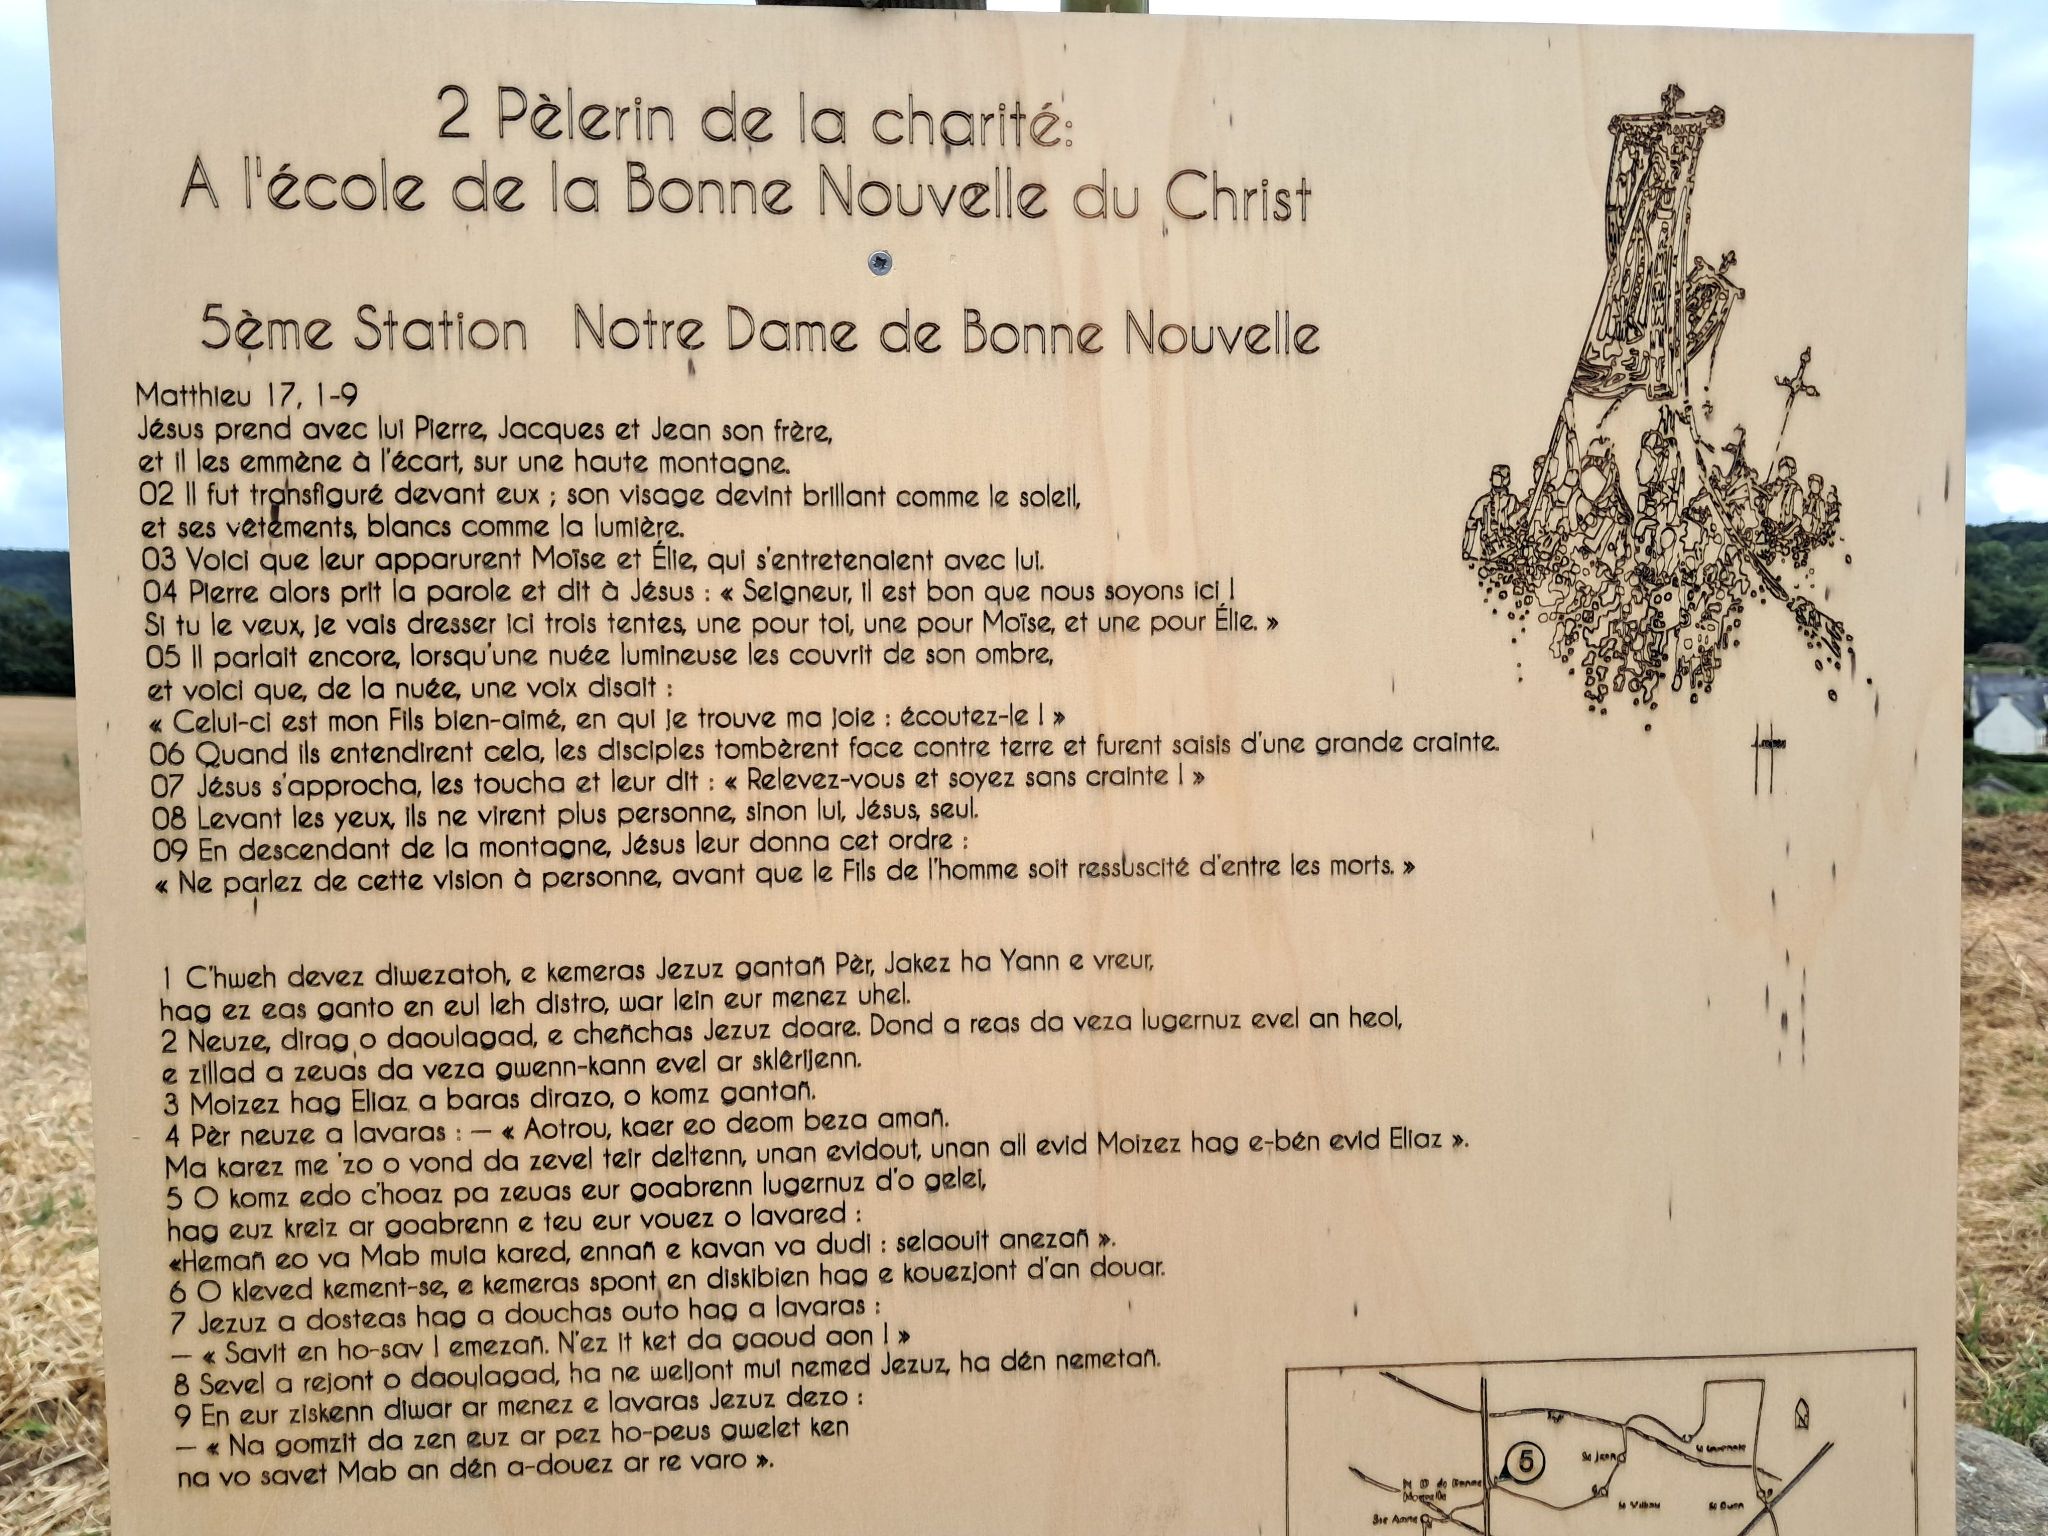 2 Pèlerin de la charité:
A l'école de la Bonne Nouvelle du Christ
5ème Station Notre Dame de Bonne Nouvelle
Matthieu 17, 1-9
Jésus prend avec lui Pierre, Jacques et Jean son frère,
et il les emmène à l'écart, sur une haute montagne.
02 Il fut transfiguré devant eux ; son visage devint brillant comme le soleil,
et ses vêtements, blancs comme la lumière.
03 Voici que leur apparurent Moïse et Élie, qui s'entretenaient avec lui.
04 Pierre alors prit la parole et dit à Jésus : « Seigneur, il est bon que nous soyons ici !
Si tu le veux, je vais dresser ici trois tentes, une pour toi, une pour Moïse, et une pour Élie. »
05 Il parlait encore, lorsqu'une nuée lumineuse les couvrit de son ombre,
et voici que, de la nuée, une voix disait :
« Celui-ci est mon Fils bien-aimé, en qui je trouve ma joie : écoutez-le ! »
06 Quand ils entendirent cela, les disciples tombèrent face contre terre et furent saisis d'une grande crainte.
07 Jésus s'approcha, les toucha et leur dit : « Relevez-vous et soyez sans crainte ! »
08 Levant les yeux, ils ne virent plus personne, sinon lui, Jésus, seul.
09 En descendant de la montagne, Jésus leur donna cet ordre :
« Ne parlez de cette vision à personne, avant que le Fils de l'homme soit ressuscité d'entre les morts. »
1 C'hweh devez diwezatoh, e kemeras Jezuz gantañ Pèr, Jakez ha Yann e vreur,
hag ez eas ganto en eul leh distro, war lein eur menez uhel.
2 Neuze, dirag o daoulagad, e cheñchas Jezuz doare. Dond a reas da veza lugernuz evel an heol,
e zillad a zeuas da veza gwenn-kann evel ar sklêrijenn.
3 Moizez hag Eliaz a baras dirazo, o komz gantañ.
4 Pèr neuze a lavaras : – « Aotrou, kaer eo deom beza amañ.
Ma karez me 'zo o vond da zevel teir deltenn, unan evidout, unan all evid Moizez hag e-bén evid Eliaz ».
5 O komz edo c'hoaz pa zeuas eur goabrenn lugernuz d'o gelei,
hag euz kreiz ar goabrenn e teu eur vouez o lavared :
«Hemañ eo va Mab muia kared, ennañ e kavan va dudi : selaouit anezañ ».
6 O kleved kement-se, e kemeras spont en diskibien hag e kouezjont d'an douar.
7 Jezuz a dosteas hag a douchas outo hag a lavaras :
– « Savit en ho-sav ! emezañ. N'ez it ket da gaoud aon ! »
8 Sevel a rejont o daoulagad, ha ne weljont mui nemed Jezuz, ha dén nemetañ.
9 En eur ziskenn diwar ar menez e lavaras Jezuz dezo :
– « Na gomzit da zen euz ar pez ho-peus gwelet ken
na vo savet Mab an dén a-douez ar re varo ».
N
St Jean
5
N D de Bonne
Nouvelle
Ste Anne